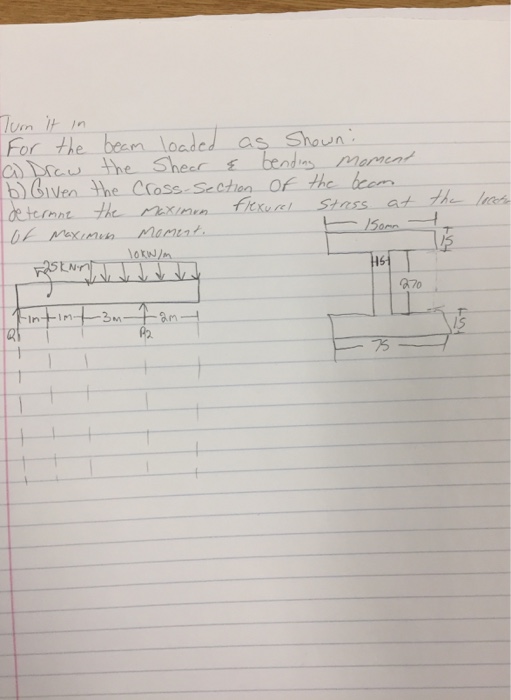 Turn it in
For the beam loaded as Shown:
a) Draw the Shear & bending moment
b) Given the Cross-Section Of the beam
determine the maximum flexural Stress at the
Of Maximum Moment.
150mm
15
10KW/m
25KN·m
15
270
1m 1m 3m 2m
R2
15
75